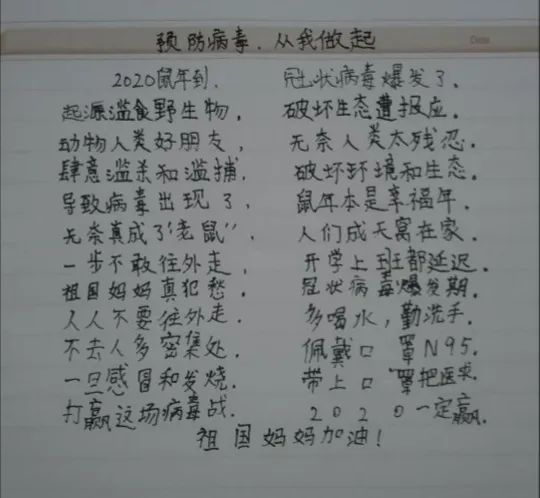 预防病毒.从我做起
2020鼠年到. 冠状病毒爆发了.
起源滥食野生物. 破坏生态遭报应.
动物人类好朋友, 无奈人类太残忍.
肆意滥杀和滥捕. 破坏环境和生态.
导致病毒出现了, 鼠年本是幸福年.
无奈真成了"老鼠". 人们成天窝在家.
一步不敢往外走, 开学上班都延迟.
祖国妈妈真犯愁. 冠状病毒爆发期.
人人不要往外走. 多喝水,勤洗手.
不去人多密集处. 佩戴口罩N95.
一旦感冒和发烧. 带上口罩把医求.
打赢这场病毒战. 2020一定赢.
祖国妈妈加油!